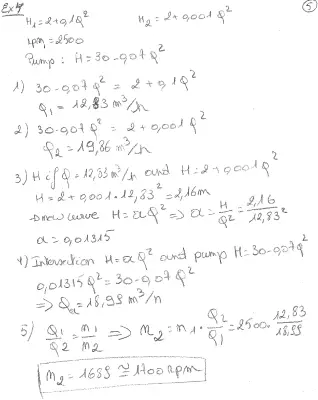 Ex4
5
H₁=2+0,1Q² H₂=2+0,001Q²
rpm=2500
Pump: H=30-0,07Q²
1) 30-0,07Q² = 2+0,1Q²
Q₁ = 12,83 m³/h
2) 30-0,07Q² = 2+0,001Q²
Q₂ = 19,86 m³/h
3) H if Q=12,83 m³/h and H=2+0,001Q²
H=2+0,001·12,83²=2,16m
Draw curve H=aQ² => a=H/Q²=2,16/12,83²
a=0,01315
4) Intersection H=aQ² and pump H=30-0,07Q²
0,01315Q²=30-0,07Q²
=> Qa=18,99 m³/h
5) Q₁/Q₂=n₁/n₂ => n₂=n₁·Q₂/Q₁=2500·12,83/18,99
n₂=1689≅1700rpm